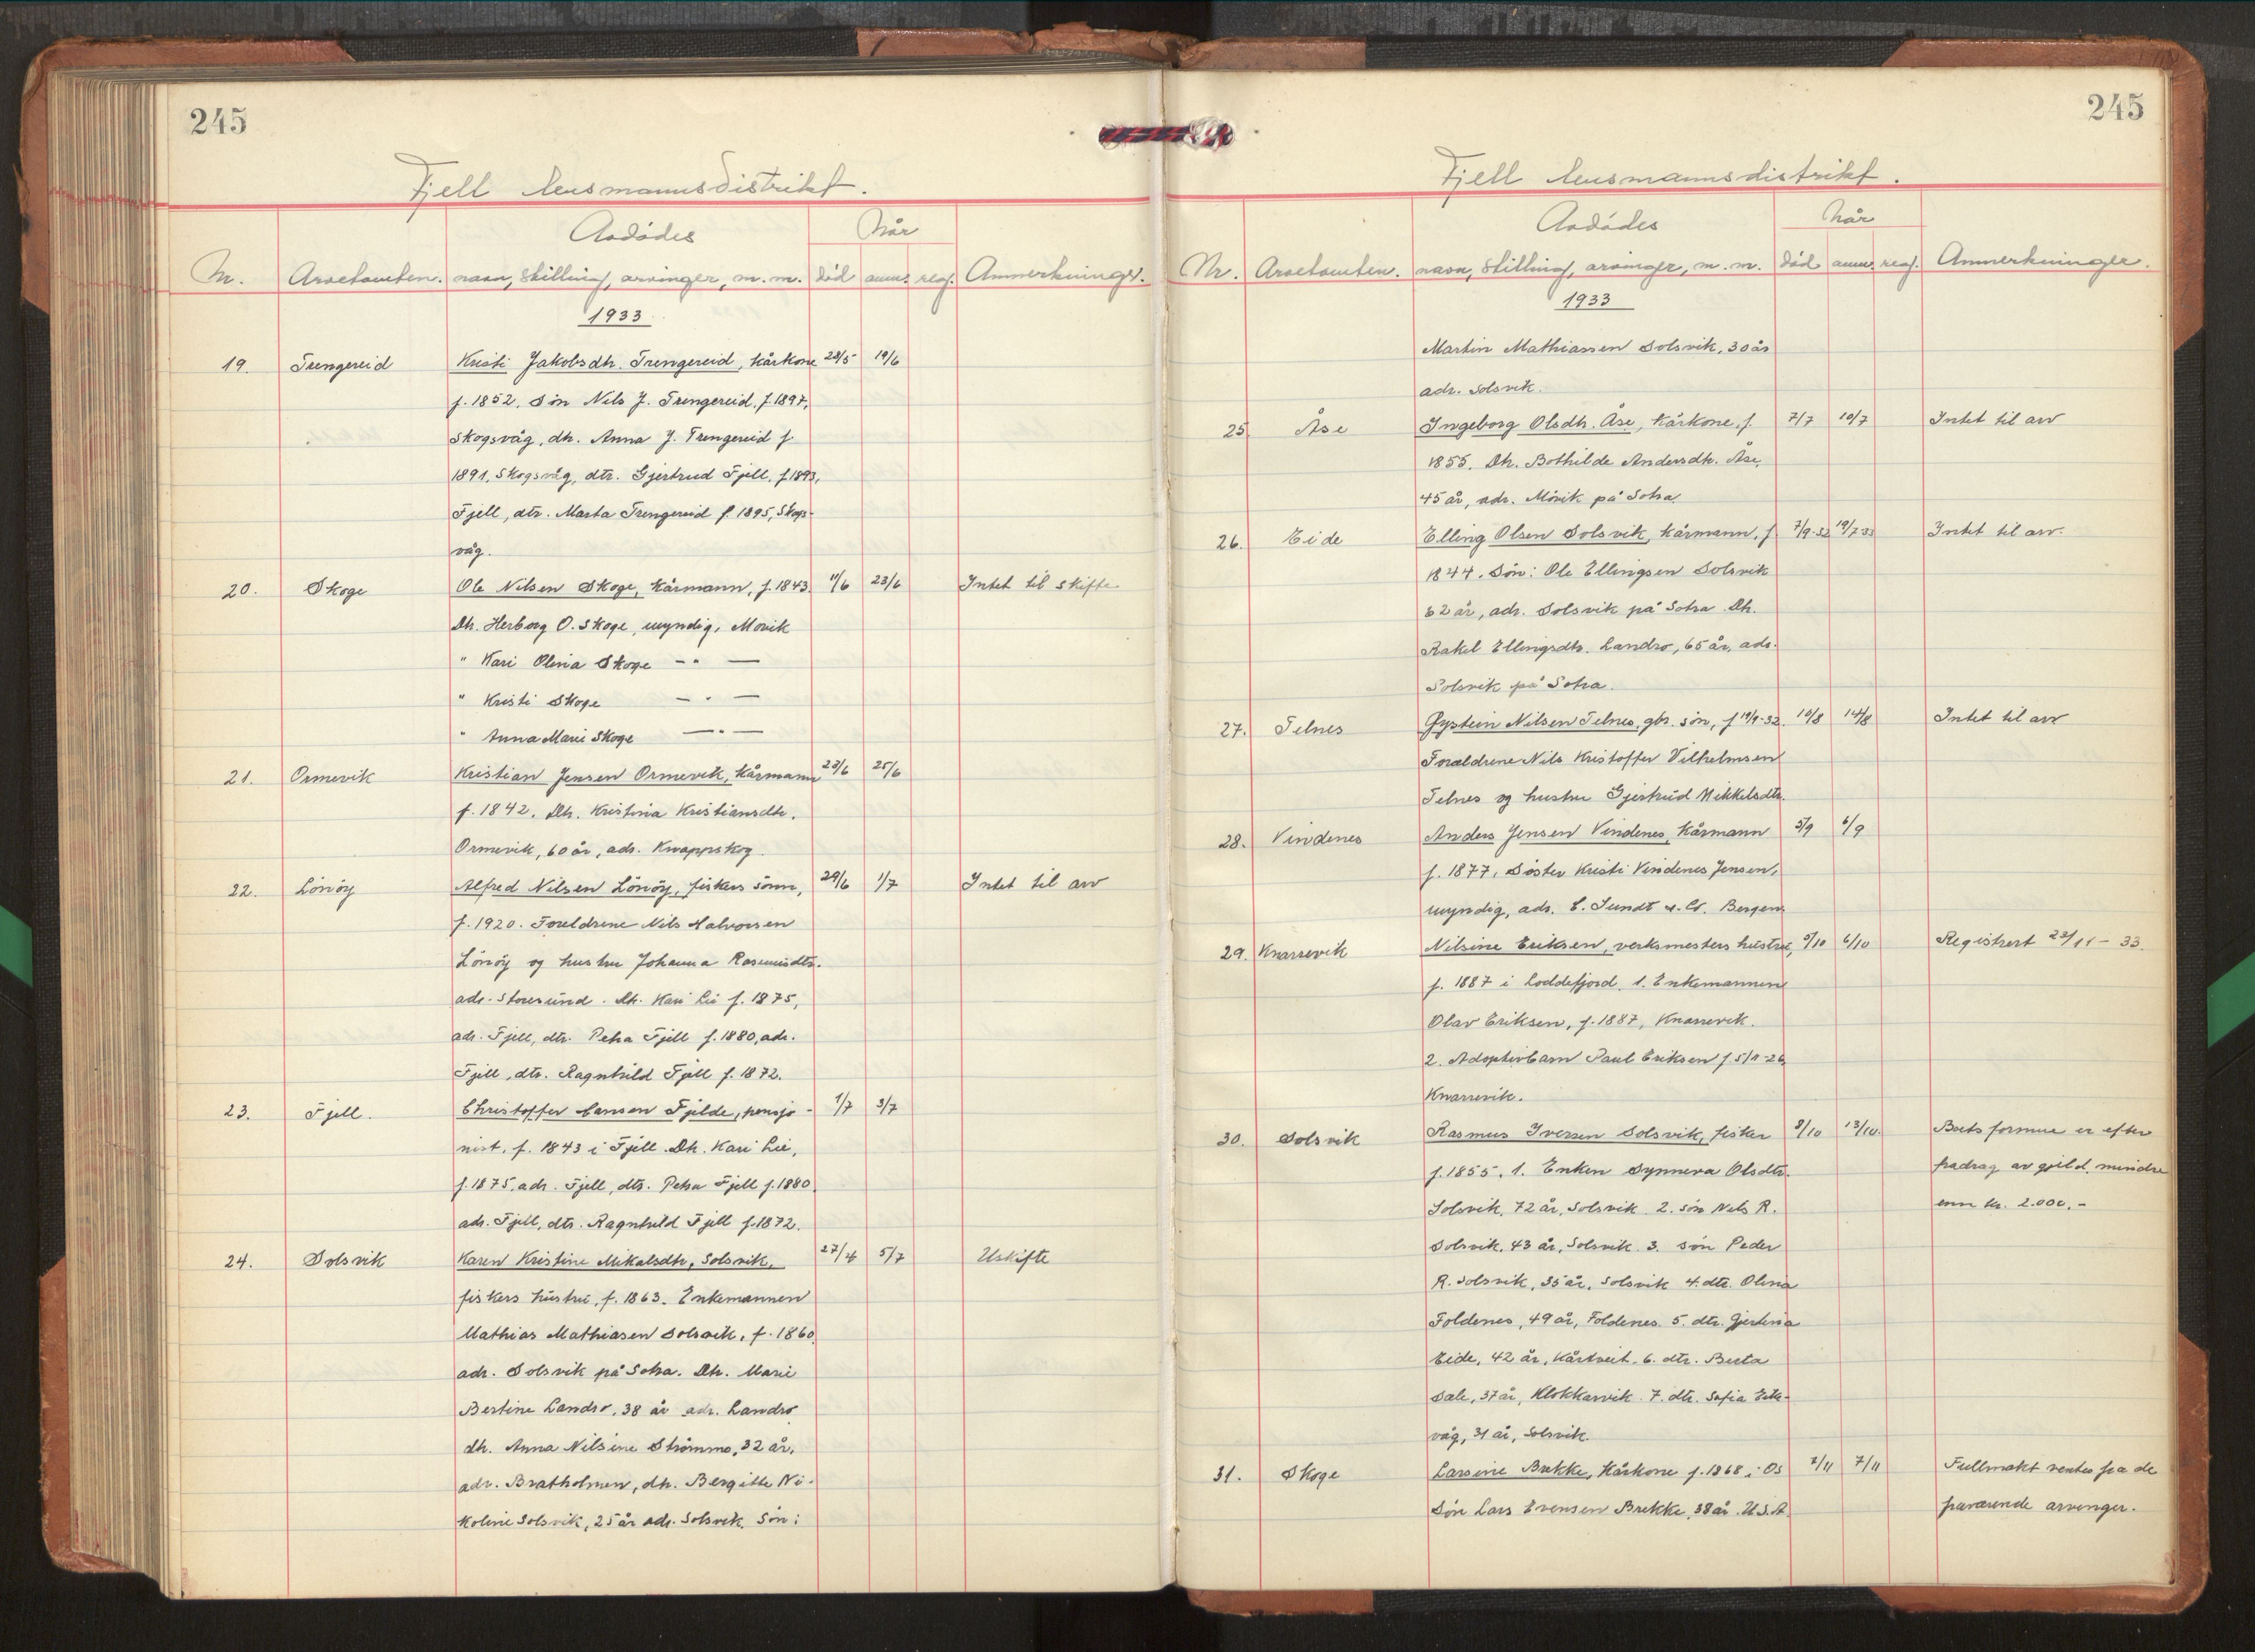 245
Fjell lensmannsdistrikt.
Avdödes
Når
Nr. Arvetomten. navn, stilling, arvinger, m.m. död anm. reg. Anmerkninger.
1933
19. Trengereid Kristi Jakobsdtr. Trengereid, kårkone 28/5 19/6
f. 1852. Sön Nels J. Trengereid, f. 1897,
Skogsvåg, dtr. Anna J. Trengereid f.
1891, Skogsvåg, dtr. Gjertrud Fjell, f. 1893,
Fjell, dtr. Marta Trengereid f. 1895, Skogs-
våg.
20. Skoge Ole Nilsen Skoge, kårmann, f. 1843. 11/6 23/6 Intet til skifte
Dtr. Herborg O. Skoge, myndig, Morvik
" Kari Olina Skoge - " -
" Kristi Skoge - " -
" Anna Marie Skoge - " -
21. Ormevik Kristian Jensen Ormevik, kårmann 23/6 25/6
f. 1842. Dtr. Kristina Kristiansdtr.
Ormevik, 60 år, adr. Knappskog.
22. Lönöy Alfred Nilsen Lönöy, fiskers sönn, 29/6 1/7 Intet til arv
f. 1920. Foreldrene Nils Halvorsen
Lönöy og hustru Johanna Rasmusdtr.
adr. Storesund. Dtr. Kari Lie f. 1875,
adr. Fjell, dtr. Petra Fjell f. 1880, adr.
Fjell, dtr. Ragnhild Fjell f. 1872.
23. Fjell. Christoffer Hansen Fjelde, pensjo- 1/7 3/7
nist, f. 1843 i Fjell. Dtr. Kari Lie,
f. 1875, adr. Fjell, dtr. Petra Fjell f. 1880
adr. Fjell, dtr. Ragnhild Fjell f. 1872.
24. Solsvik Karen Kristine Mikalsdtr, Solsvik, 27/4 5/7 Uskifte
fiskers hustru, f. 1863. Enkemannen
Mathias Mathiasen Solsvik, f. 1860,
adr. Solsvik på Sotra. Dtr. Marie
Bertine Landro, 38 år adr. Landro
dtr. Anna Nilsine Strömme, 32 år,
adr. Bratholmen, dtr. Bergitte Ni-
koline Solsvik, 25 år adr. Solsvik. Sön:
245
Fjell lensmannsdistrikt.
Avdödes
Når
Nr. Arvetomten. navn, stilling, arvinger, m.m. död anm. reg. Anmerkninger.
1933
Martin Mathiassen Solsvik, 30 år
adr. Solsvik.
25. Åse Ingeborg Olsdtr. Åse, kårkone, f. 7/7 10/7 Intet til arv
1855. Dtr. Bothilde Andersdtr. Åse,
45 år, adr. Mövik på Sotra
26. Eide Elling Olsen Solsvik, kårmann, f. 7/9-32 19/7 33 Intet til arv.
1844. Sön: Ole Ellingsen Solsvik
62 år, adr. Solsvik på Sotra. Dtr.
Rakel Ellingsdtr. Landro, 65 år, adr.
Solsvik på Sotra.
27. Telnes Øystein Nilsen Telnes, gbr. sön, f 19/9-32. 10/8 14/8 Intet til arv
Foreldrene Nils Kristoffer Vilhelmsen
Telnes og hustru Gjertrud Mikkelsdtr.
28. Vindenes Anders Jensen Vindenes, kårmann 5/9 6/9
f. 1877, Söster Kristi Vindenes Jensen,
myndig, adr. E. Sundt & Co. Bergen
29. Knarrevik Nilsine Eriksen, verksmesters hustru, 5/10 6/10 Registrert 23/11 - 33.
f. 1887 i Loddefjord. 1. Enkemannen
Olav Eriksen, f. 1887, Knarrevik.
2. Adoptivbarn Paul Eriksen f. 5/1-26
Knarrevik.
30. Solsvik Rasmus Iversen Solsvik, fisker 8/10 13/10. Boets formue er efter
f. 1855. 1. Enken Synneva Olsdtr. fradrag av gjeld mindre
Solsvik, 72 år, Solsvik. 2. sön Nels R. enn kr. 2.000,-
Solsvik, 43 år, Solsvik. 3. sön Peder
R. Solsvik, 35 år, Solsvik 4. dtr. Olina
Foldenes, 49 år, Foldenes. 5. dtr. Gjertina
Eide, 42 år, Kårtveit. 6. dtr. Berta
Dale, 37 år, Klokkarvik. 7. dtr. Sofia
våg, 31 år, Solsvik.
31. Skoge Larsine Brekke, kårkone f. 1868 i Os 2/11 7/11 Fullmakt ventes fra de
Sön Lars Evensen Brekke, 38 år. U.S.A. fraværende arvinger.